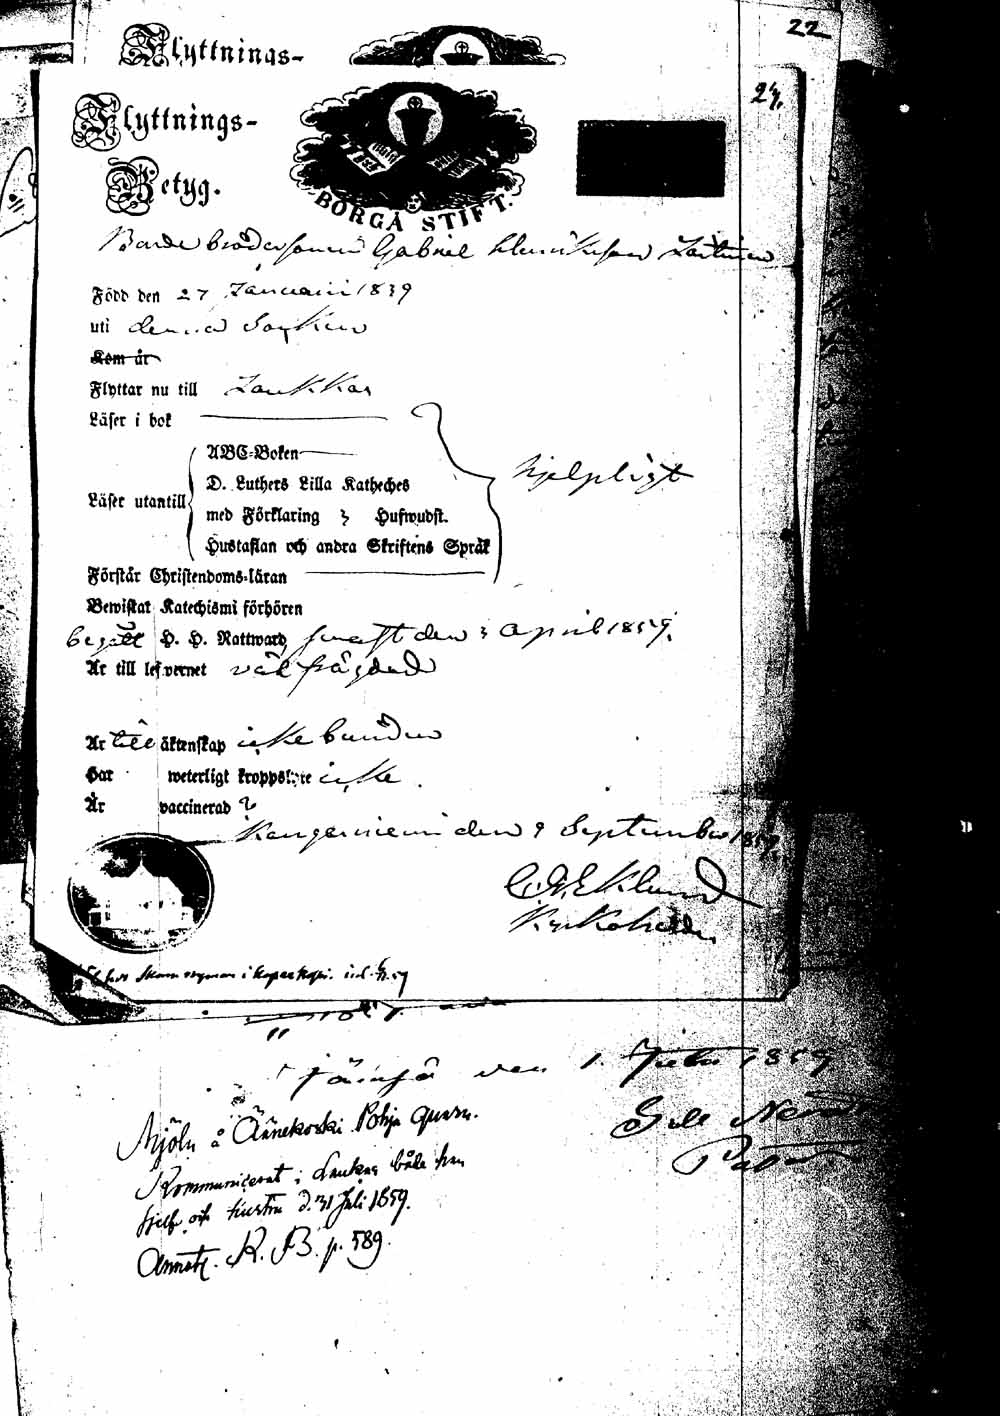 22
Flyttnings-
24.
Flyttnings-
Betyg.
BORGÅ STIFT.
Bonde brodersonen Gabriel Henriksson
Född den 27 Januarii 1839
uti denna Socken
Kom år
Flyttar nu till Laukkas
Läser i bok
ABC-Boken
hjelpligt
D. Luthers Lilla Katheches
Läser utantill
med Förklaring Hufwudst.
Hustaflan och andra Skriftens Språk
Förstår Christendoms-läran
Bewistat Katechismi förhören
begått H. H. Nattward, den 3 April 1859.
Är till lefwernet väl frägdad
Är till äktenskap icke bunden
Har weterligt kroppslyte icke
Är vaccinerad ?
Kangasniemi den 9 September 1859.
C. G. Eklund
Kyrkoherde
den 1. 1859
Mjöln å Äänekoski Pohja quarn.
Kommunicerat i Laukas både han
sjelf och hustru d. 31 Juli 1859.
Annot. K. B. p. 589.